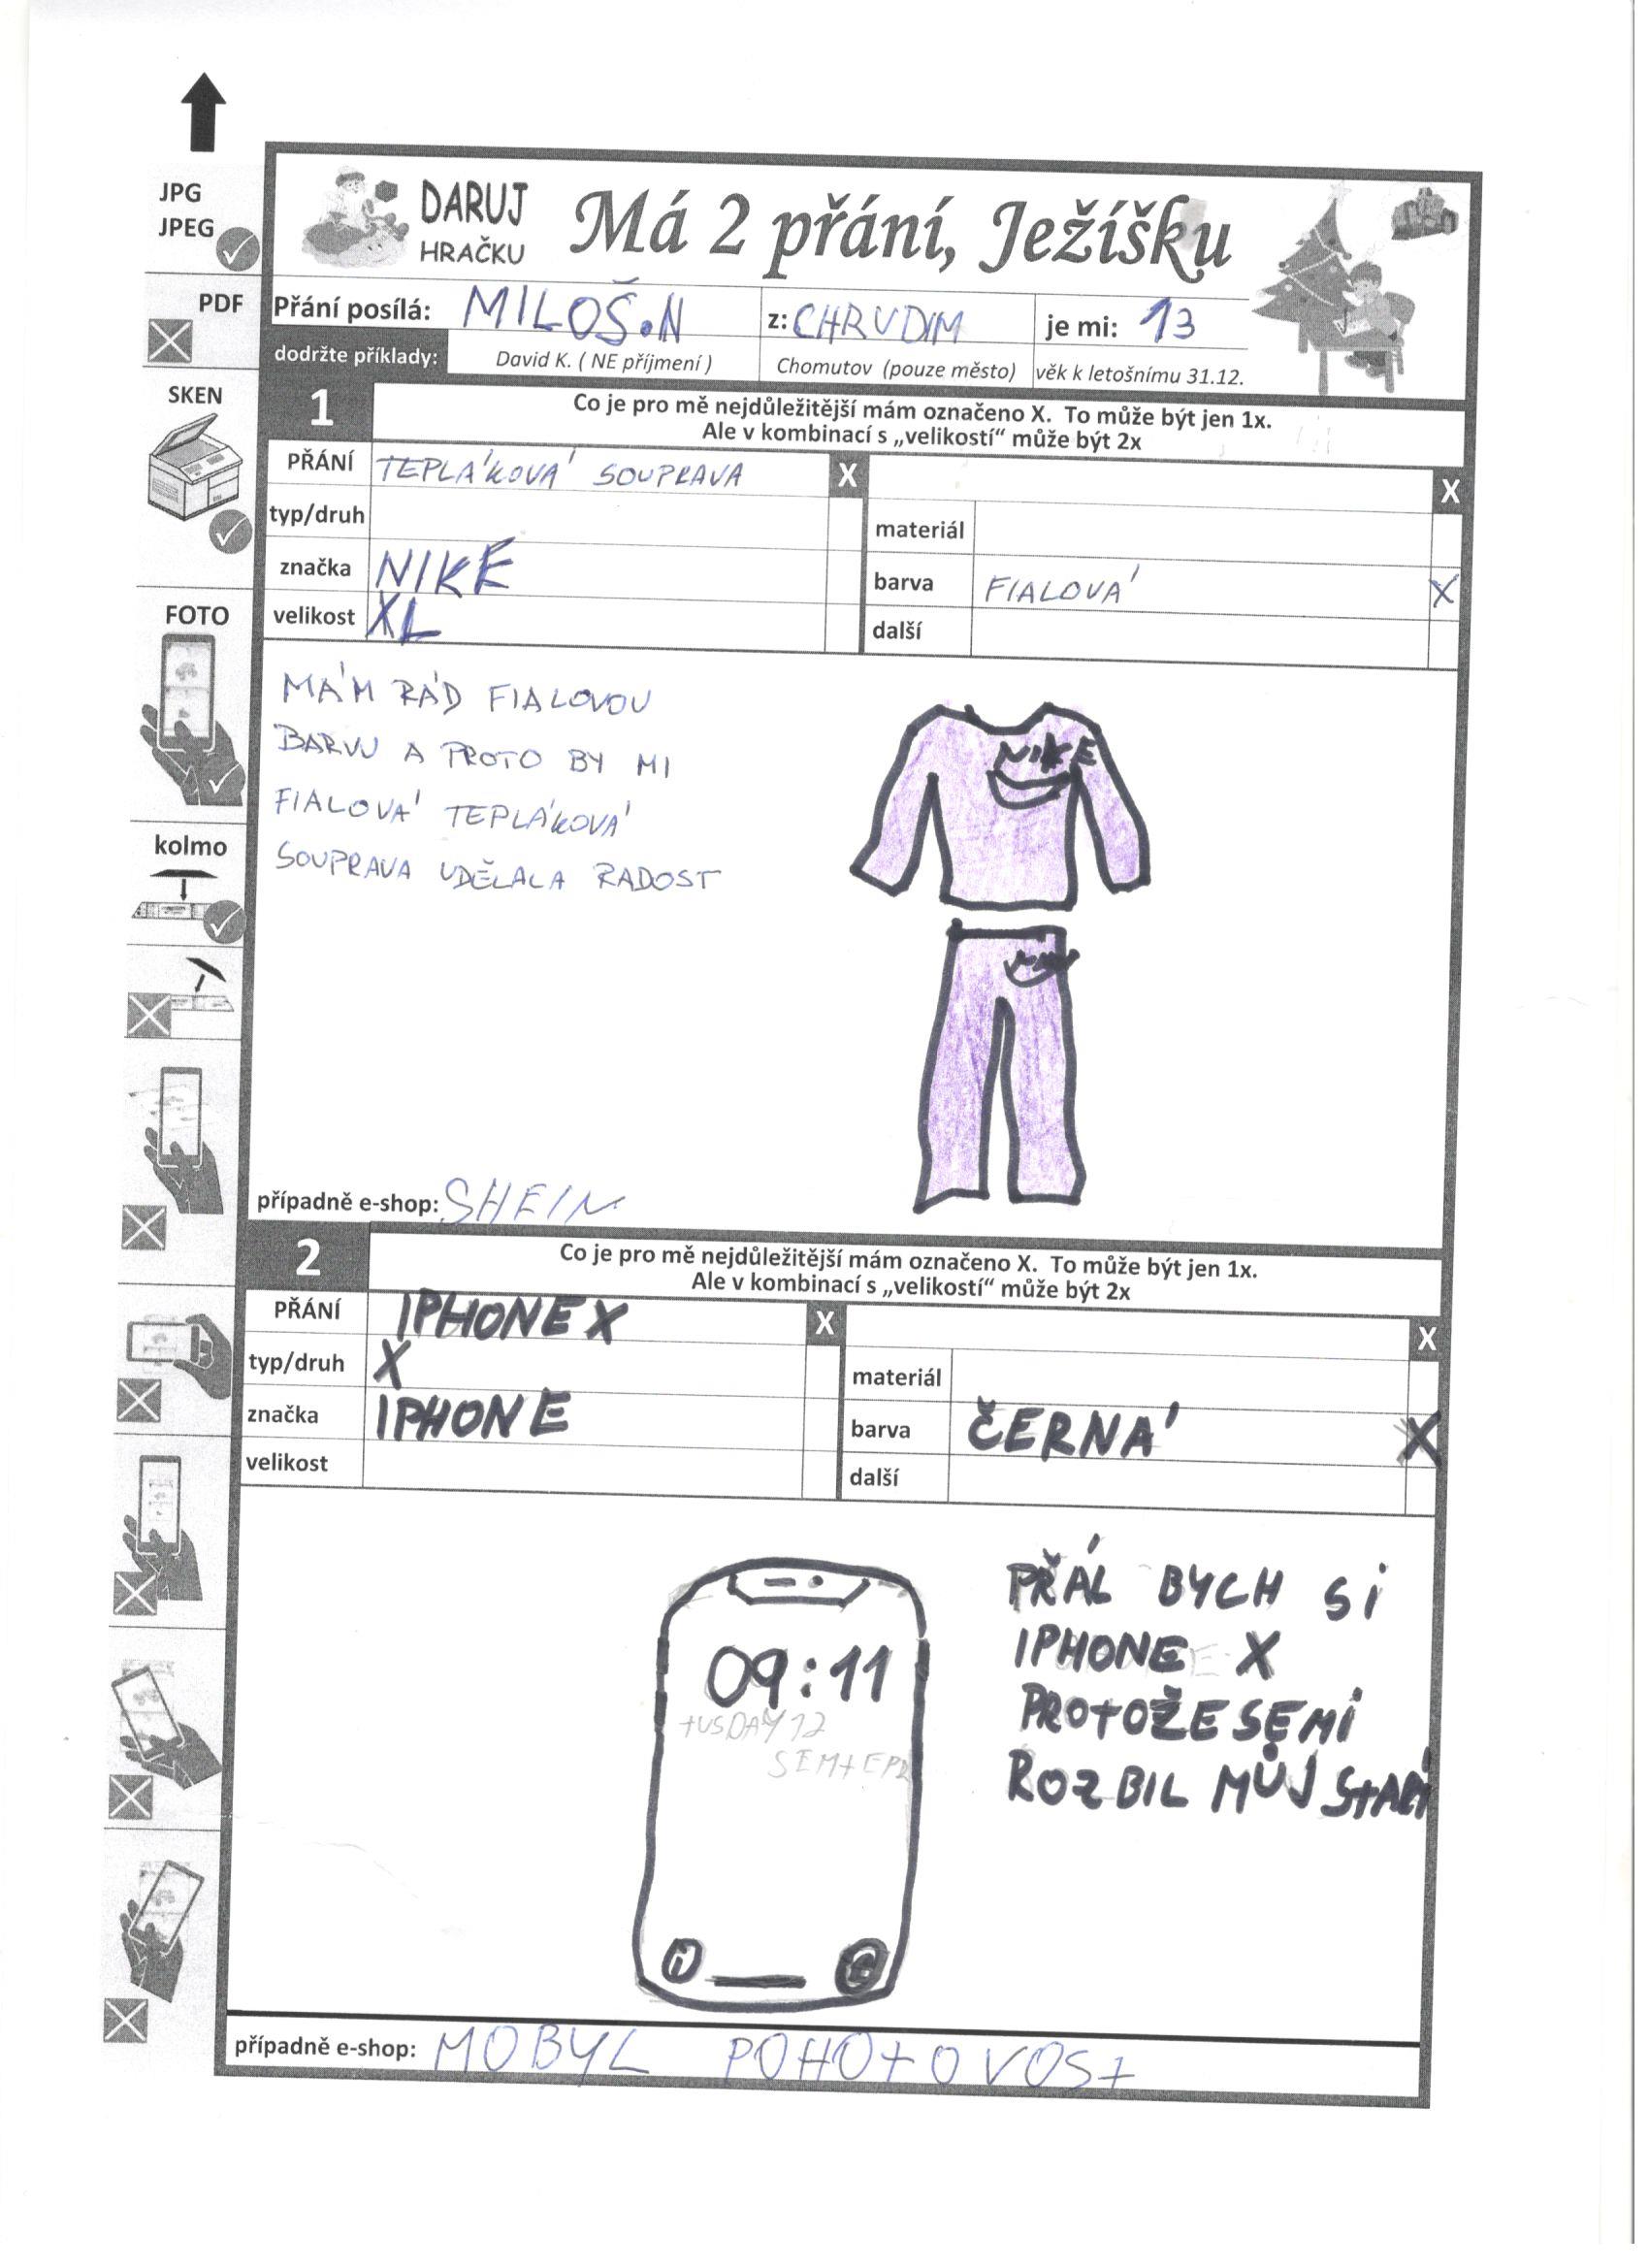 JPG
JPEG
PDF
SKEN
FOTO
kolmo
DARUJ
HRAČKU
Má 2 přání, Ježíšku
Přání posílá: MILOŠ.N z: CHRUDIM je mi: 13
dodržte příklady: David K. ( NE příjmení ) Chomutov (pouze město) věk k letošnímu 31.12.
1
Co je pro mě nejdůležitější mám označeno X. To může být jen 1x.
Ale v kombinací s „velikostí“ může být 2x
PŘÁNÍ TEPLÁKOVÁ SOUPRAVA X X
typ/druh materiál
značka NIKE barva FIALOVÁ X
velikost XL další
MÁM RÁD FIALOVOU
BARVU A PROTO BY MI
FIALOVÁ TEPLÁKOVÁ
SOUPRAVA UDĚLALA RADOST
NIKE
případně e-shop: SHEIN
2
Co je pro mě nejdůležitější mám označeno X. To může být jen 1x.
Ale v kombinací s „velikostí“ může být 2x
PŘÁNÍ IPHONE X X X
typ/druh X materiál
značka IPHONE barva ČERNÁ X
velikost další
09:11
tUSDAY 12
PŘÁL BYCH Si
IPHONE X
PROtOŽE SE Mi
ROZBIL MŮJ StARÍ
případně e-shop: MOBYL POHOtOVOSt